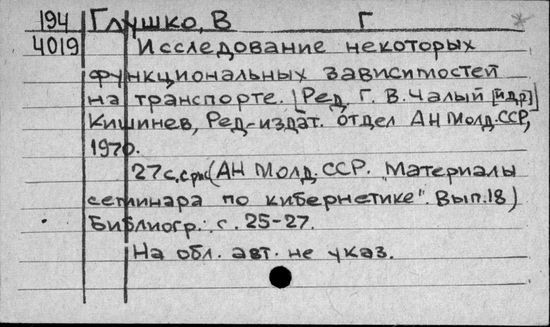 194 Глушко, В Г
4019 Исследование некоторых
функциональных зависимостей
на транспорте. [Ред. Г. В. Чалый [и др.]]
Кишинев, Ред-издат. отдел АН Молд. ССР,
1970.
27 с. с рис (АН Молд. ССР. "Материалы
семинара по кибернетике". Вып. 18)
Библиогр.: с. 25-27.
На обл. авт. не указ.